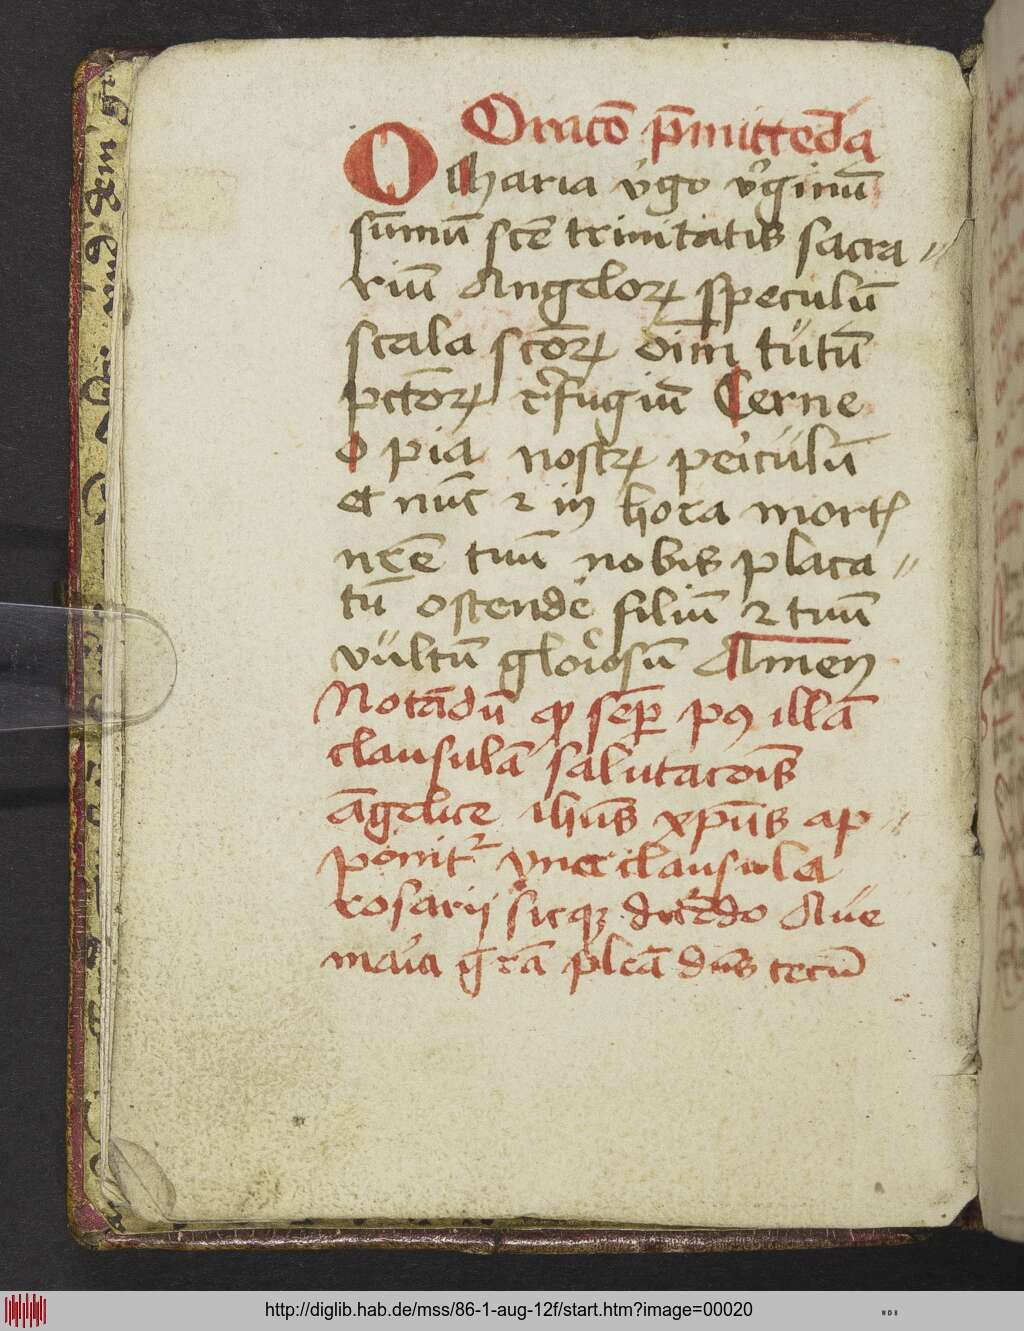 Oracō p̄mittēda
O Maria v̾go v̾ginū
sūmū scē trinitatis sacra〃
riū Angeloꝝ speculū
scala scōꝝ oīm tutū
pctōꝝ r̾fugiū Cerne
o pia nostꝝ peiculū
et nūc ⁊ in hora mortꝭ
nrē tuū nobis placa〃
tū ostende filiū ⁊ tuū
vultū gloiosū Amen
Notādū ꝙ semꝑ pꝰ illā
clausulā salutacōis
āgelice ihūs xpūs ap〃
ponitᷣ vna clausula
rosarij sicqꝫ dicēdo Aue
maia gr̄a plēa dn̄s tecū
http://diglib.hab.de/mss/86-1-aug-12f/start.htm?image=00020
WDB